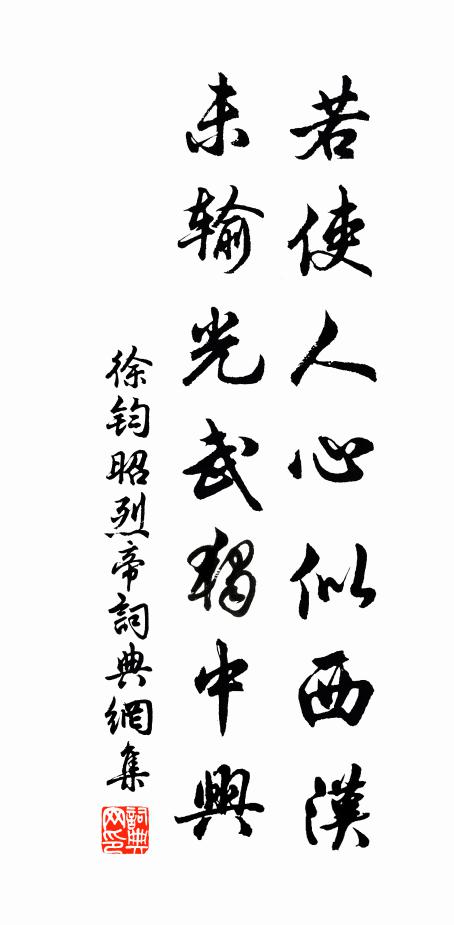 若使人心似西漢
未輸光武獨中興
徐鈞昭烈帝詞典網集
詞典網印